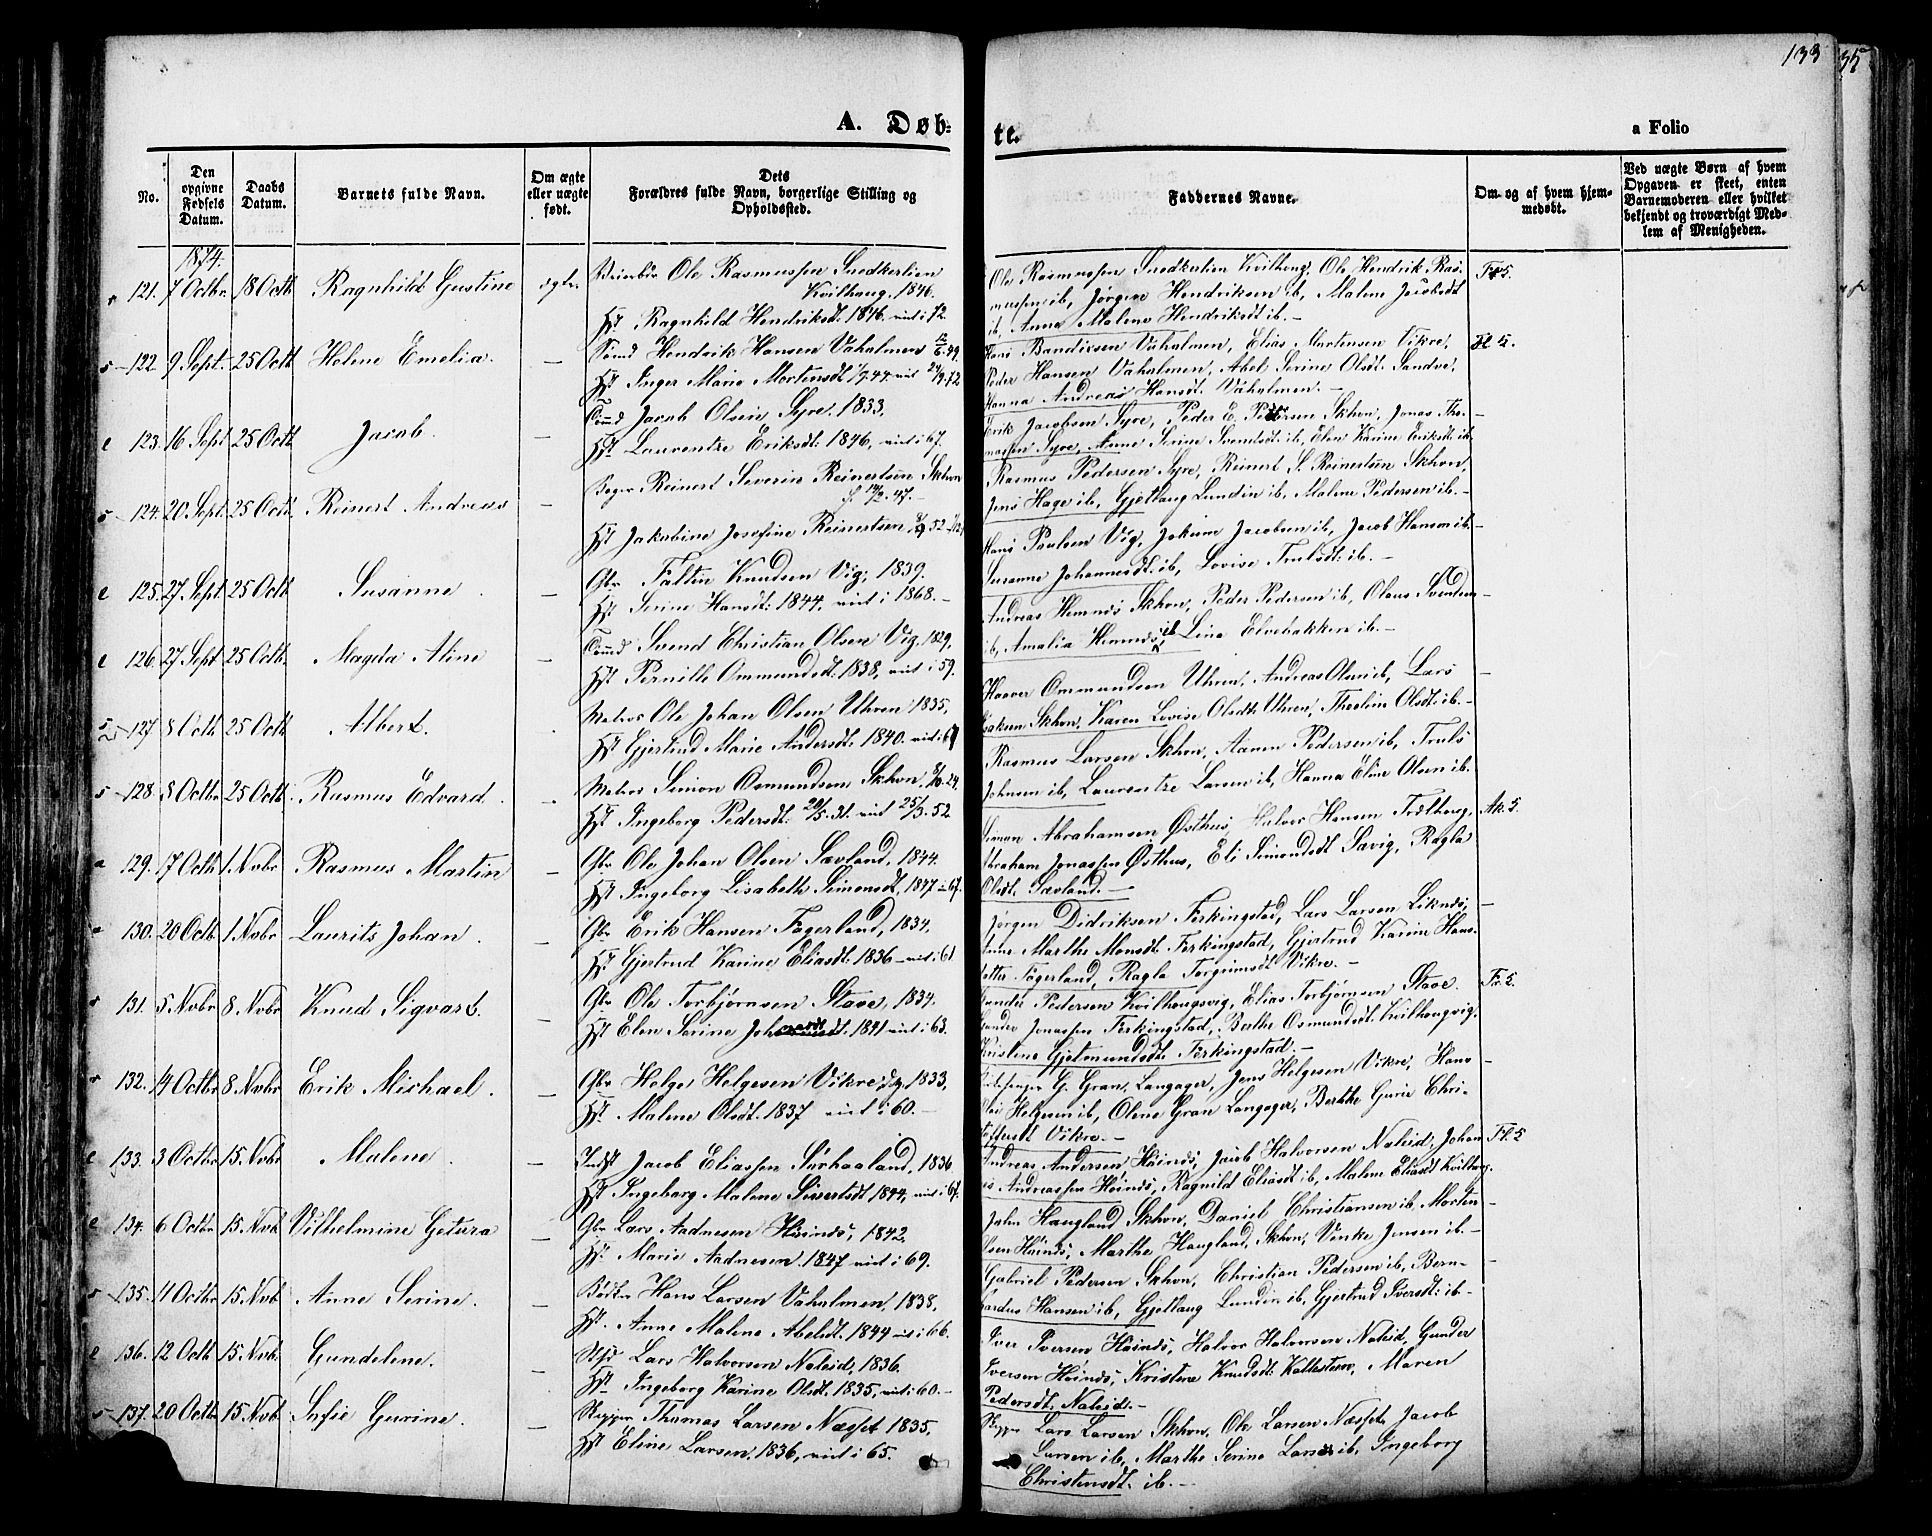 133
35
A. Døb-
te.
a Folio
No.
Den opgivne Fødsels Datum.
Daabs Datum.
Barnets fulde Navn.
Om ægte eller uægte født.
Dets Forældres fulde Navn, borgerlige Stilling og Opholdssted.
Faddernes Navne.
Om og af hvem hjemmedøbt.
Ved uægte Børn af hvem Opgaven er skeet, enten Barnemoderen eller hvilket bekjendt og troværdigt Medlem af Menigheden.
1874.
121. 7 Octbr 18 Octb Ragnhild Gustine ægte.
Ole Rasmussen Snedkerlien
Kvilhaug. 1846.
Hst Ragnhild Hendriksdt. 1846. viet i 72.
Ole Rasmussen Snedkerlien Kvilhoug, Ole Hendrik Ras-
mussen ib, Jørgen Hendriksen ib, Malene Jacobsdt
ib, Anne Malene Hendriksdt ib. –
122. 9 Sept. 25 Octb Helene Emelia. –
Hendrik Hansen Vaholmen
Hst Inger Marie Mortensdt
Hans Bendixsen Vaholmen, Elias Mortensen Vikre,
Peder Hansen Vaholmen, Abel Serine Olsdt. Sandve,
Hanna Andreas Hansdt. Vaholmen. –
123. 16 Sept 25 Octb Jacob. –
Jacob Olsen Syre. 1833.
Hst Laurentze Eriksdt. 1846, viet i 67.
Erik Jacobsen Syre, Peder E. Pedersen Skhvn, Jonas Tho-
massen Syre, Anne Serine Svendsdt ib, Elen Karine Eriksdt ib.
124. 20 Sept. 25 Octb. Reinert Andreas –
Reinert Severin Reinertsen Skhvn
Hst Jakobine Josefine Reinertsen
Rasmus Pedersen Syre, Reinert S. Reinertsen Skhvn,
Jens Hage ib, Gjetlaug Lundin ib, Malene Pedersen ib. –
125. 27 Sept 25 Octb Susanne. –
Gbr Faltin Knudsen Vig, 1839.
Hst Serine Hansdt. 1844, viet i 1868. –
Hans Poulsen Vig, Jokum Jacobsen ib, Jacob Hansen ib.
Susanne Johannesdt. ib, Lovise Trulsdt. ib. –
126. 27 Sept 25 Octb. Magda Aline –
Svend Christian Olsen Vig, 1829,
Hst Pernille Ommundsdt. 1838, viet i 59.
Andreas Hemnes Skhvn, Peder Pedersen ib, Olaus Svendsen
ib, Amalia Hemnes ib, Lina Elvebakken ib. –
127. 8 Octb 25 Octb Albert.
Matros Ole Johan Olsen Uhren 1835,
Hst Gjertrud Marie Andersdt. 1840. viet i 67
Haaver Ommundsen Uhren, Andreas Olsen ib, Lars
Skhvn, Karen Lovise Olsdt Uhren, Theoline Olsdt ib. –
128. 8 Octbr 25 Octb. Rasmus Edvard.
Matros Simon Osmundsen Skhvn,
Hst Ingeborg Pedersdt. 20/5. 31. viet 25/3. 52.
Rasmus Larsen Skhvn, Aanen Pedersen ib, Truls
Johnsen ib, Laurentze Larsen ib, Hanna Eline Olsen ib.
129. 17 Octb 1. Novbr Rasmus Martin –
Gbr Ole Johan Olsen Sævland, 1844.
Hst Ingeborg Lisabeth Simonsdt, 1847 – 67.
Simon Abrahamsen Østhus, Halvor Hansen
Abraham Jonassen Østhus, Eli Simondsdt Sævig, Ragla
Olsdt. Sævland. –
130. 20 Octb 1. Novbr Laurits Johan. –
Gbr Erik Hansen Fagerland, 1834.
Hst Gjertrud Karine Eliasdt. 1836 – viet i 61.
Jørgen Didriksen Ferkingstad, Lars Larsen Liknes,
Marthe Monsdt. Ferkingstad, Gjertrud Karine Hans-
datter Fagerland, Ragla Torgrimsdt Vikre. –
131. 5 Novbr 8. Novbr Knud Sigvart. –
Gbr Ole Torbjørnsen Stave, 1834.
Hst Elen Serine 1841 viet i 63.
Pedersen Kvilhaugsvig, Elias Torbjørnsen Stave.
Gunder Jonassen Ferkingstad, Berthe Osmundsdt. Kvilhougvig,
Kristene Gjetmundsdt. Ferkingstad. –
132. 14 Octbr 8. Novbr Erik Michael. –
Gbr Helge Helgesen Vikre 1833,
Hst. Malene Olsdt. 1837 viet i 60. –
G. Gran, Langager, Jens Helgesen Vikre, Hans
Helgesen ib, Olene Gran Langager, Berthe Gurie Chri-
stoffersdt Vikre. –
133. 3 Octbr 15. Novbr Malene. –
Indst Jacob Eliassen Sørhaaland, 1836
Hst Ingeborg Malene Sivertsdt 1844, viet i 67.
Andreas Andersen Høines, Jacob Halvorsen Naleid, Johan-
es Andreassen Høines, Ragnild Eliasdt ib, Malene Eliasdt Kvilhoug.
134. 6 Octbr 15. Novb Vilhelmine Getura –
Gbr Lars Aadnesen Høines, 1842,
Hst. Marie Aadnesen. 1847 viet i 69.
John Haugland Skhvn, Daniel Christiansen ib, Morten
Olsen Høines, Marthe Haugland, Skhvn, Vinke Jensen ib. –
135. 11 Octbr 15. Novb. Anne Serine. –
Bødker Hans Larsen Vaholmen. 1838,
Hst. Anne Malene Abelsdt. 1844 viet i 66.
Gabriel Pedersen Skhvn, Christian Pedersen ib, Bern-
hardus Hansen ib, Gjetlaug Lundin ib, Gjertrud Iversdt: ib –
136. 12 Octb 15. Novb. Gundelene. –
Lars Halvorsen Naleid, 1836.
Hst. Ingeborg Karine Olsdt. 1835, viet i 60. –
Iver Iversen Høines, Halvor Halvorsen Naleid, Gunder
Iversen Høines, Kristene Knudsdt. Kallesteen, Maren
Pedersdt. Naleid. –
137. 20 Octbr 15. Novb. Sofie Gurine. –
Skipper Thomas Larsen Næsset 1835,
Hst Eline Larsen, 1836, viet i 65.
Skipper Lars Larsen Skhvn, Ole Larsen Næsset, Jacob
Larsen ib, Marthe Serine Larsen ib, Ingeborg
Christensdt. ib. –